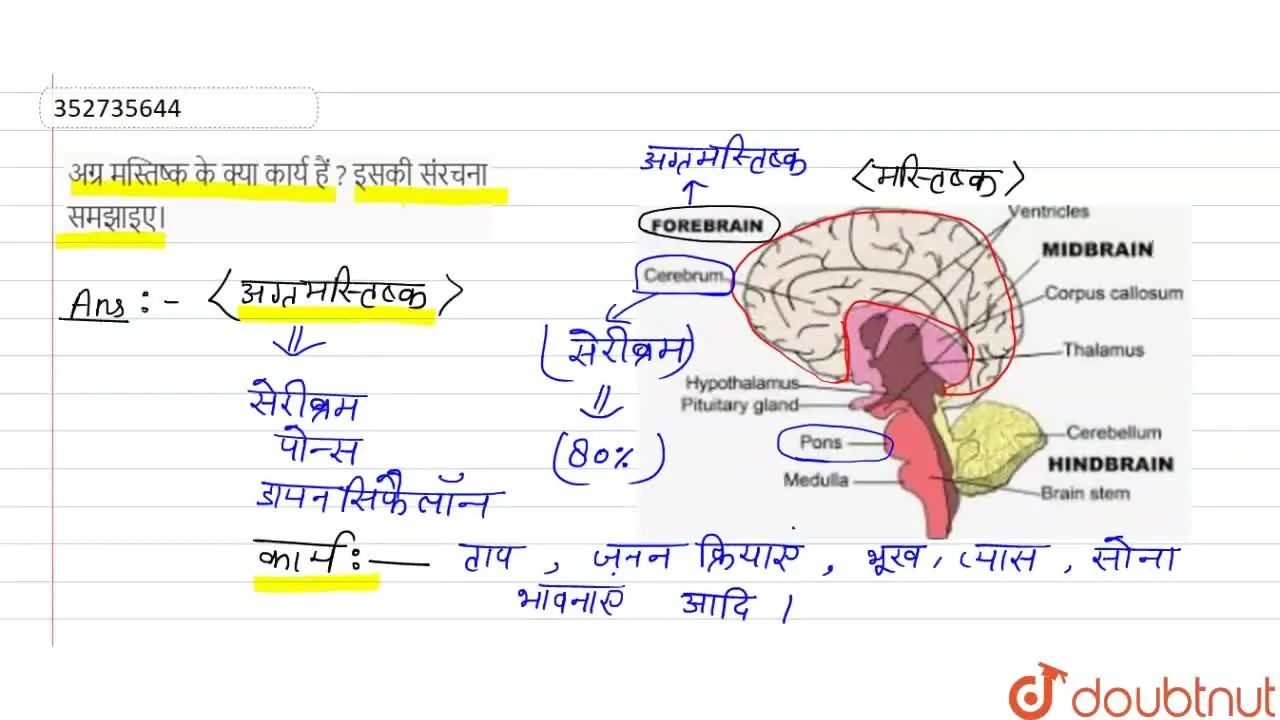 352735644
अग्र मस्तिष्क के क्या कार्य हैं ? इसकी संरचना
समझाइए।
अग्रमस्तिष्क
<मस्तिष्क>
FOREBRAIN
Ventricles
MIDBRAIN
Cerebrum
Corpus callosum
Ans :- <अग्रमस्तिष्क>
(सेरीब्रम)
Thalamus
Hypothalamus
Pituitary gland
सेरीब्रम
पोन्स
(80%)
Pons
Cerebellum
HINDBRAIN
Medulla
Brain stem
डायनसिफैलॉन
कार्य :— ताप , ज़नन क्रियाएं , भूख, प्यास , सोना
भावनाएं आदि ।
doubtnut